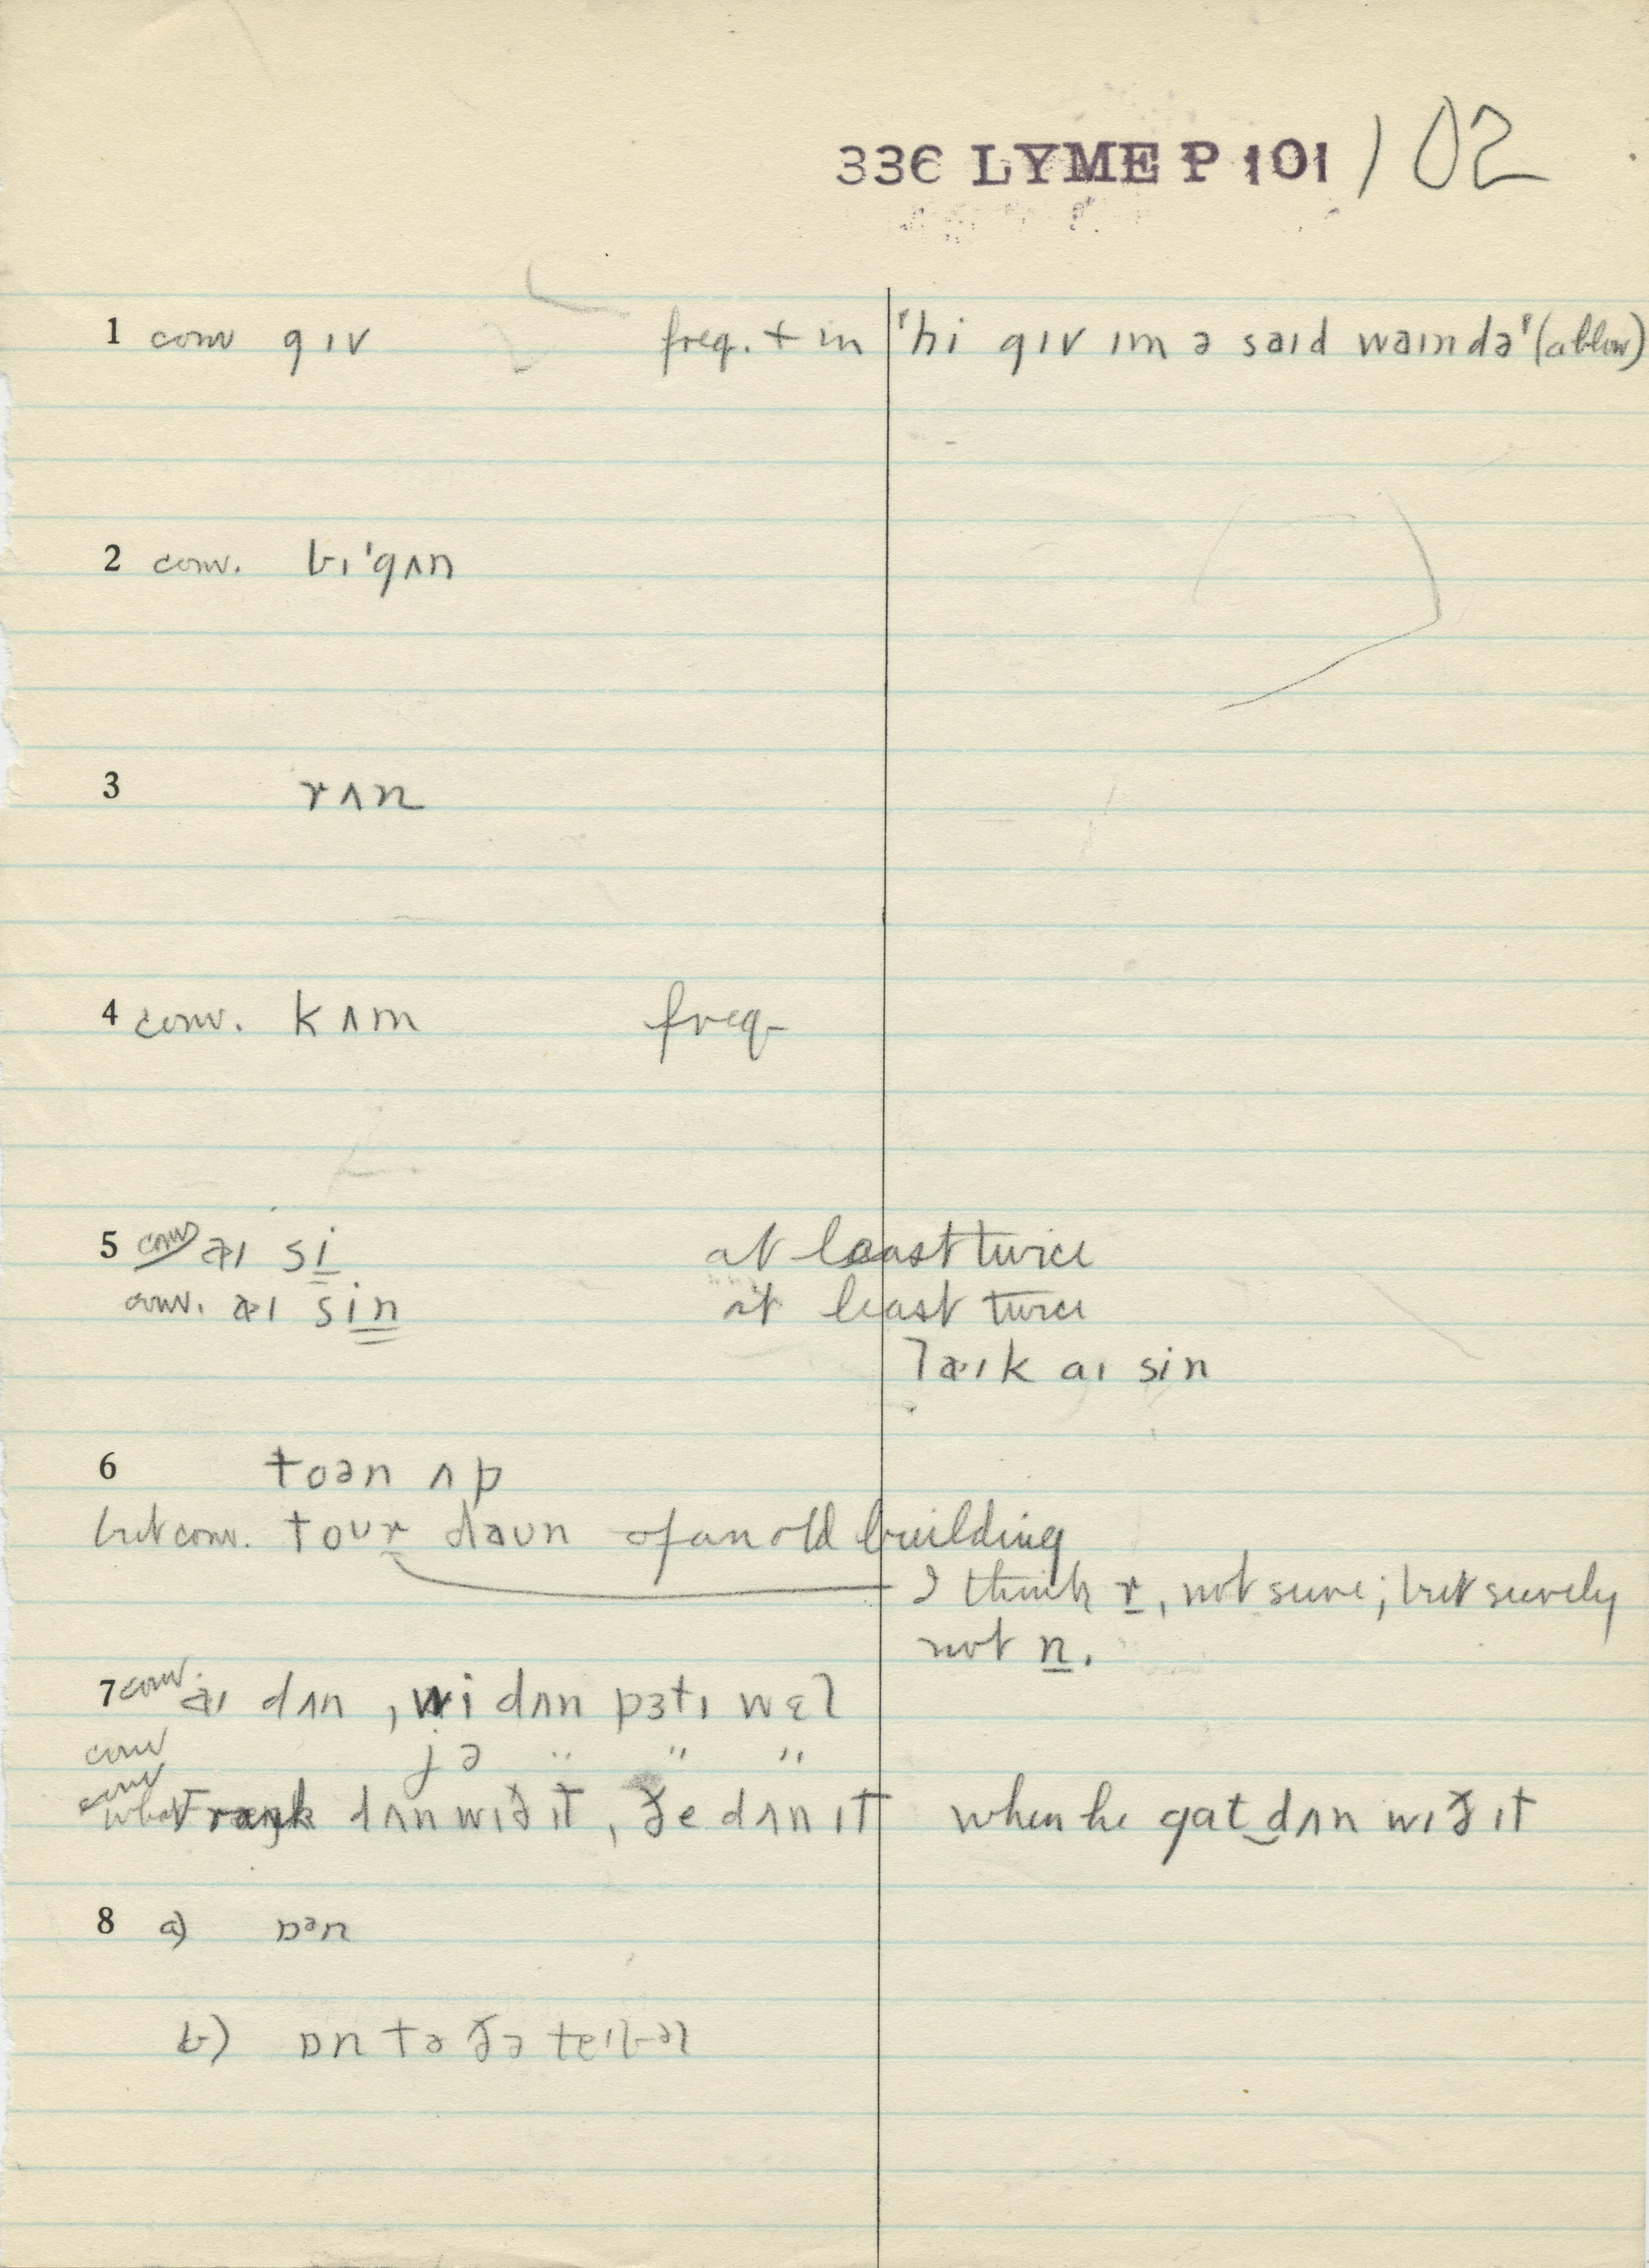 336 LYME P 101 / 02
1 conv gɪv freq. + in 'hi gɪv ɪm ə saɪd waɪndə' (a blow)
2 conv. bɪ'gʌn
3 rʌn
4 conv. kʌm freq.
5 conv aɪ si at least twice
conv. aɪ sin at least twice
laɪk aɪ sin
6 toən ʌp
but conv. toʊr daʊn of an old building
I think r, not sure; but surely
not n.
7 conv. aɪ dʌn, wi dʌn pɜtɪ wɛl
conv jə " " "
conv what Frank dʌn wɪð ɪt, ðe dʌn ɪt when he gat dʌn wɪð ɪt
8 a) ɒᵊn
b) ɒn tə ðə teɪbəl